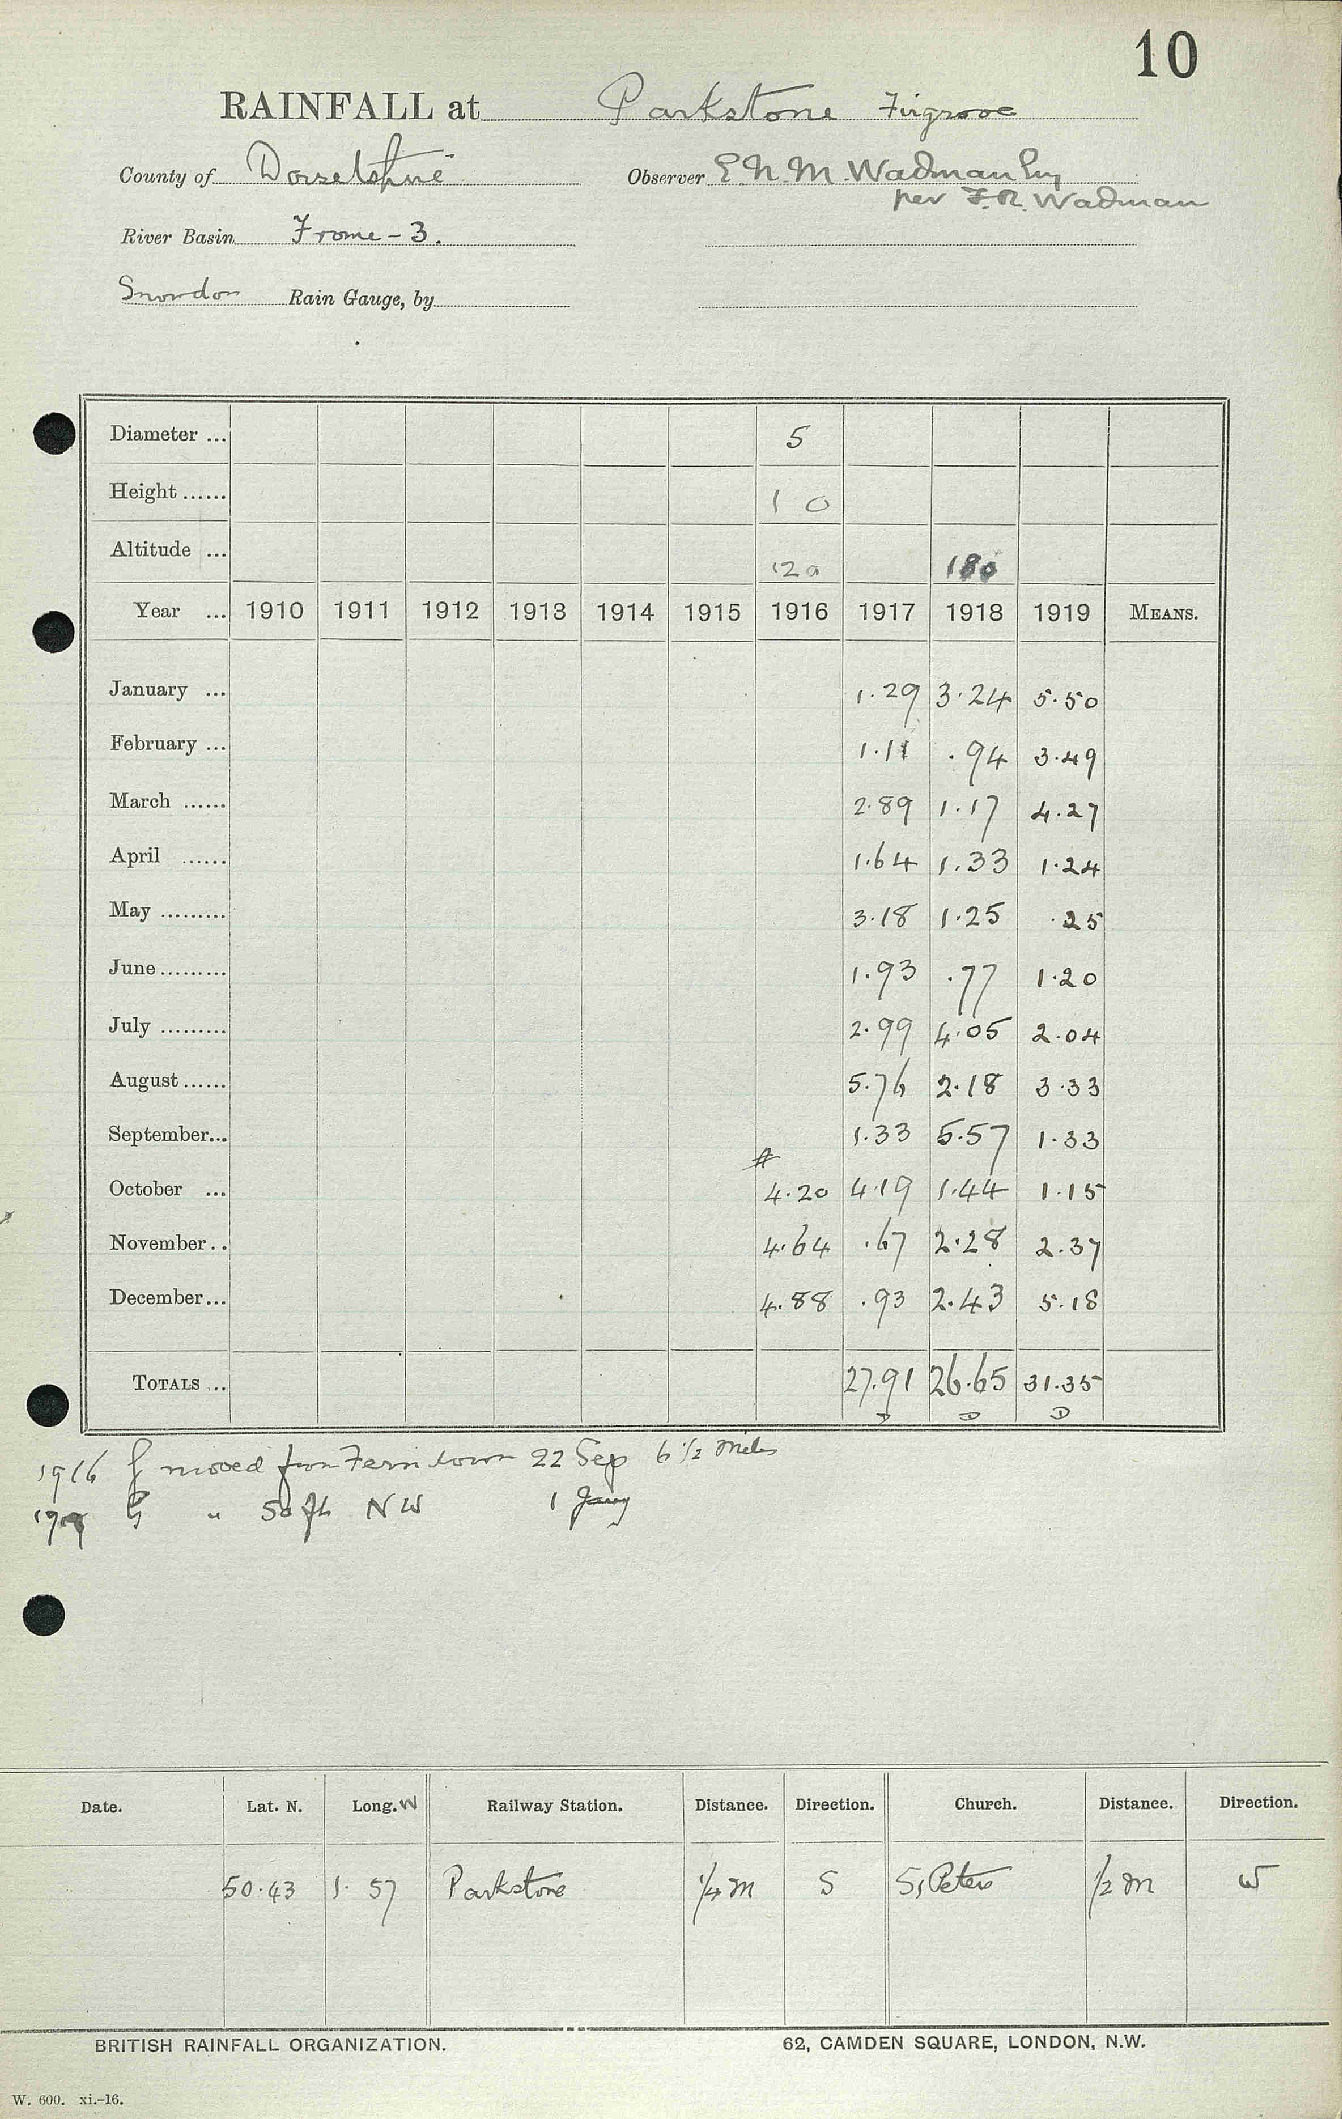 10
RAINFALL at Parkstone Firgrove
County of Dorsetshire Observer E.N.M. Wadman Esq
per F.R. Wadman
River Basin Frome - 3.
Snowdon Rain Gauge, by
Diameter ... 5
Height ...... 1 0
Altitude ... 120 180
Year ... 1910 1911 1912 1913 1914 1915 1916 1917 1918 1919 MEANS.
January ... 1.29 3.24 5.50
February ... 1.11 .94 3.49
March ...... 2.89 1.17 4.27
April ...... 1.64 1.33 1.24
May ......... 3.18 1.25 .25
June ......... 1.93 .77 1.20
July ......... 2.99 4.05 2.04
August ...... 5.76 2.18 3.33
September... 1.33 5.57 1.33
#
October ... 4.20 4.19 1.44 1.15
November .. 4.64 .67 2.28 2.37
December... 4.88 .93 2.43 5.18
TOTALS ... 27.91 26.65 31.35
D D D
1916 G moved from Ferndown 22 Sep 6 1/2 miles
G " 50 ft NW 1 Jany
Date. Lat. N. Long. W Railway Station. Distance. Direction. Church. Distance. Direction.
50.43 1. 57 Parkstone 1/4 m S St Peters 1/2 m W
BRITISH RAINFALL ORGANIZATION. 62, CAMDEN SQUARE, LONDON, N.W.
W. 600. xi.-16.